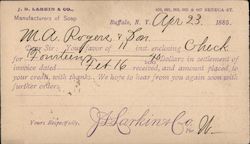 J. D. LARKIN & CO.,
Manufacturers of Soap
Buffalo, N. Y. Apr 23. 1885.
M. A. Rogers & Son
Dear Sir: Your favor of 11 inst. enclosing Check
for Fourteen 40 Dollars in settlement of
invoice dated Feb 16 received, and amount placed to
your credit, with thanks. We hope to hear from you again soon with
further orders.
Yours Respectfully,
J. D. Larkin & Co.